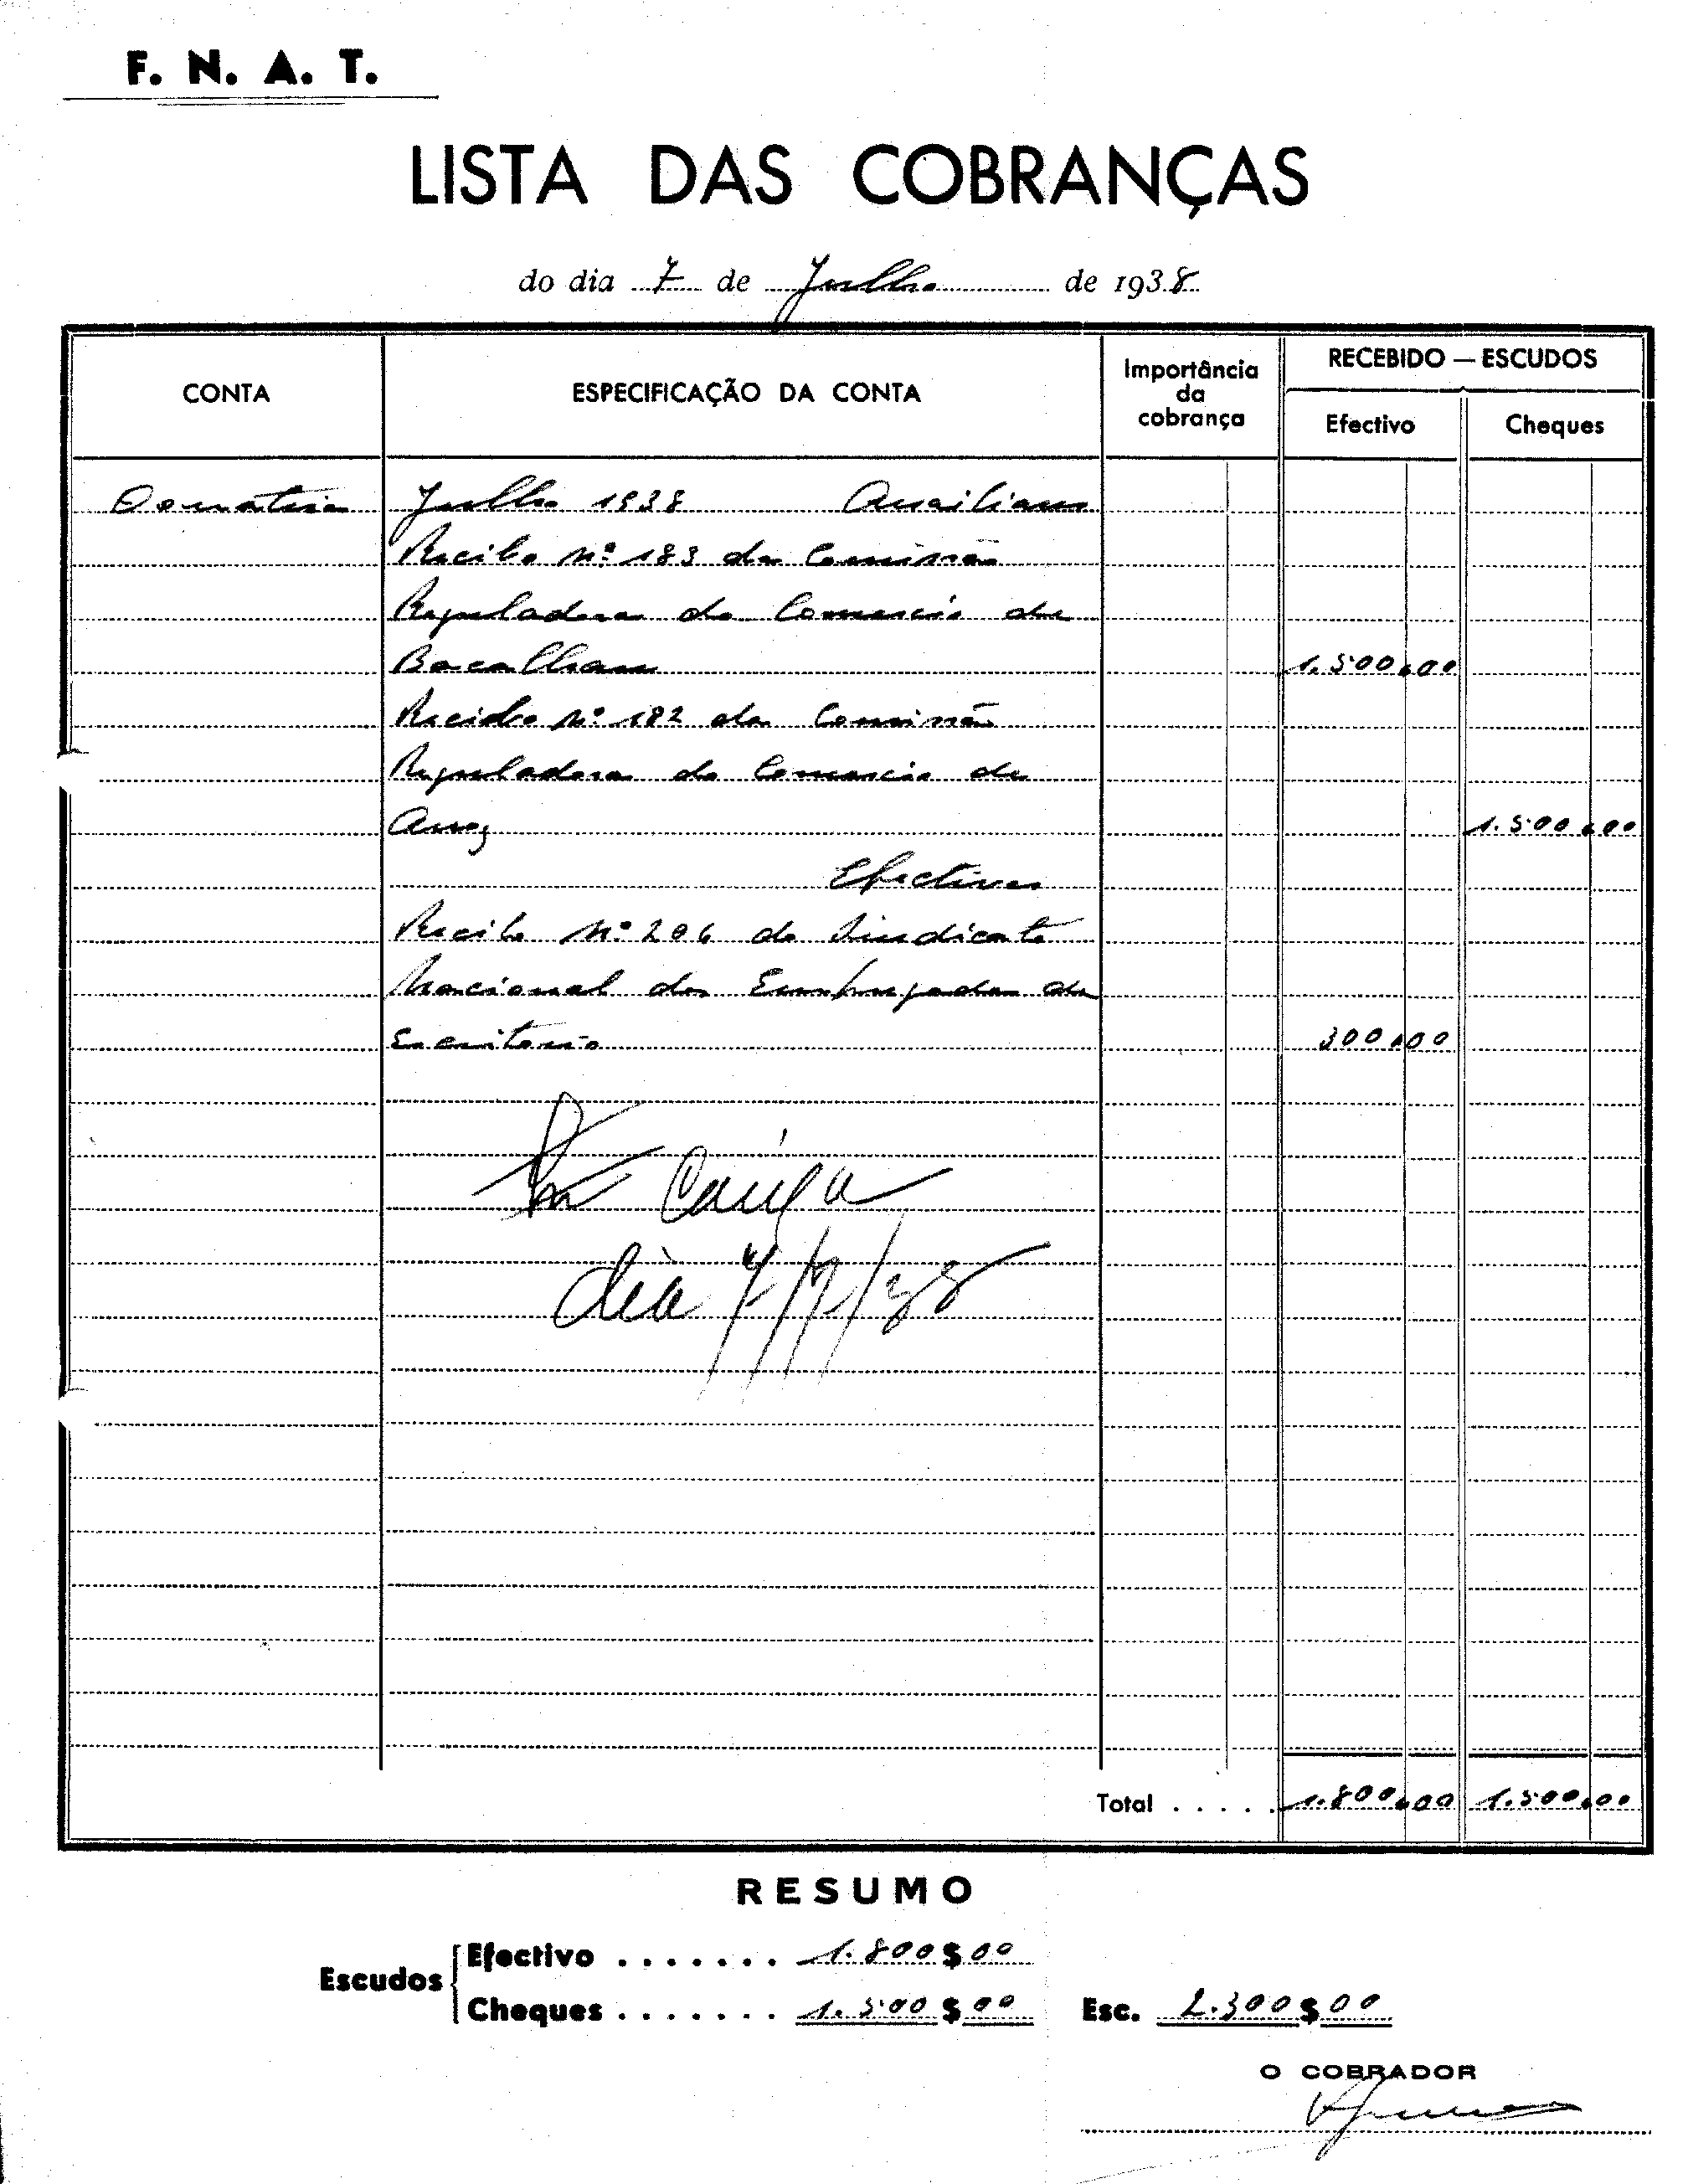 F. N. A. T.
LISTA DAS COBRANÇAS
do dia 7 de Julho de 1938
CONTA
ESPECIFICAÇÃO DA CONTA
Importância
da
cobrança
RECEBIDO — ESCUDOS
Efectivo
Cheques
Julho 1938 Auxiliares
Recibo Nº 183 da Comissão
Reguladora do Comercio de
Bacalhau 1.500.00
Recibo Nº 182 da Comissão
Reguladora do Comercio de
Arroz 1.500.00
Efectivos
Recibo Nº 206 do Sindicato
Nacional dos Empregados de
Escritorio 300.00
Caixa
dia 7/7/38
Total . . . . . 1.800.00 1.500.00
RESUMO
Escudos
Efectivo . . . . . . . 1.800$00
Cheques . . . . . . . 1.500$00
Esc. 2.300$00
O COBRADOR